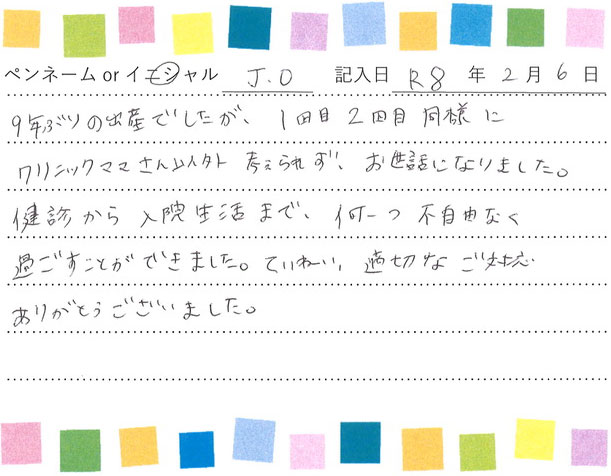 ペンネーム or イニシャル J.O 記入日 R8 年 2 月 6 日
9年ぶりの出産でしたが、1回目2回目同様に
クリニックママさん以外考えられず、お世話になりました。
健診から入院生活まで、何一つ不自由なく
過ごすことができました。ていねい、適切なご対応
ありがとうございました。